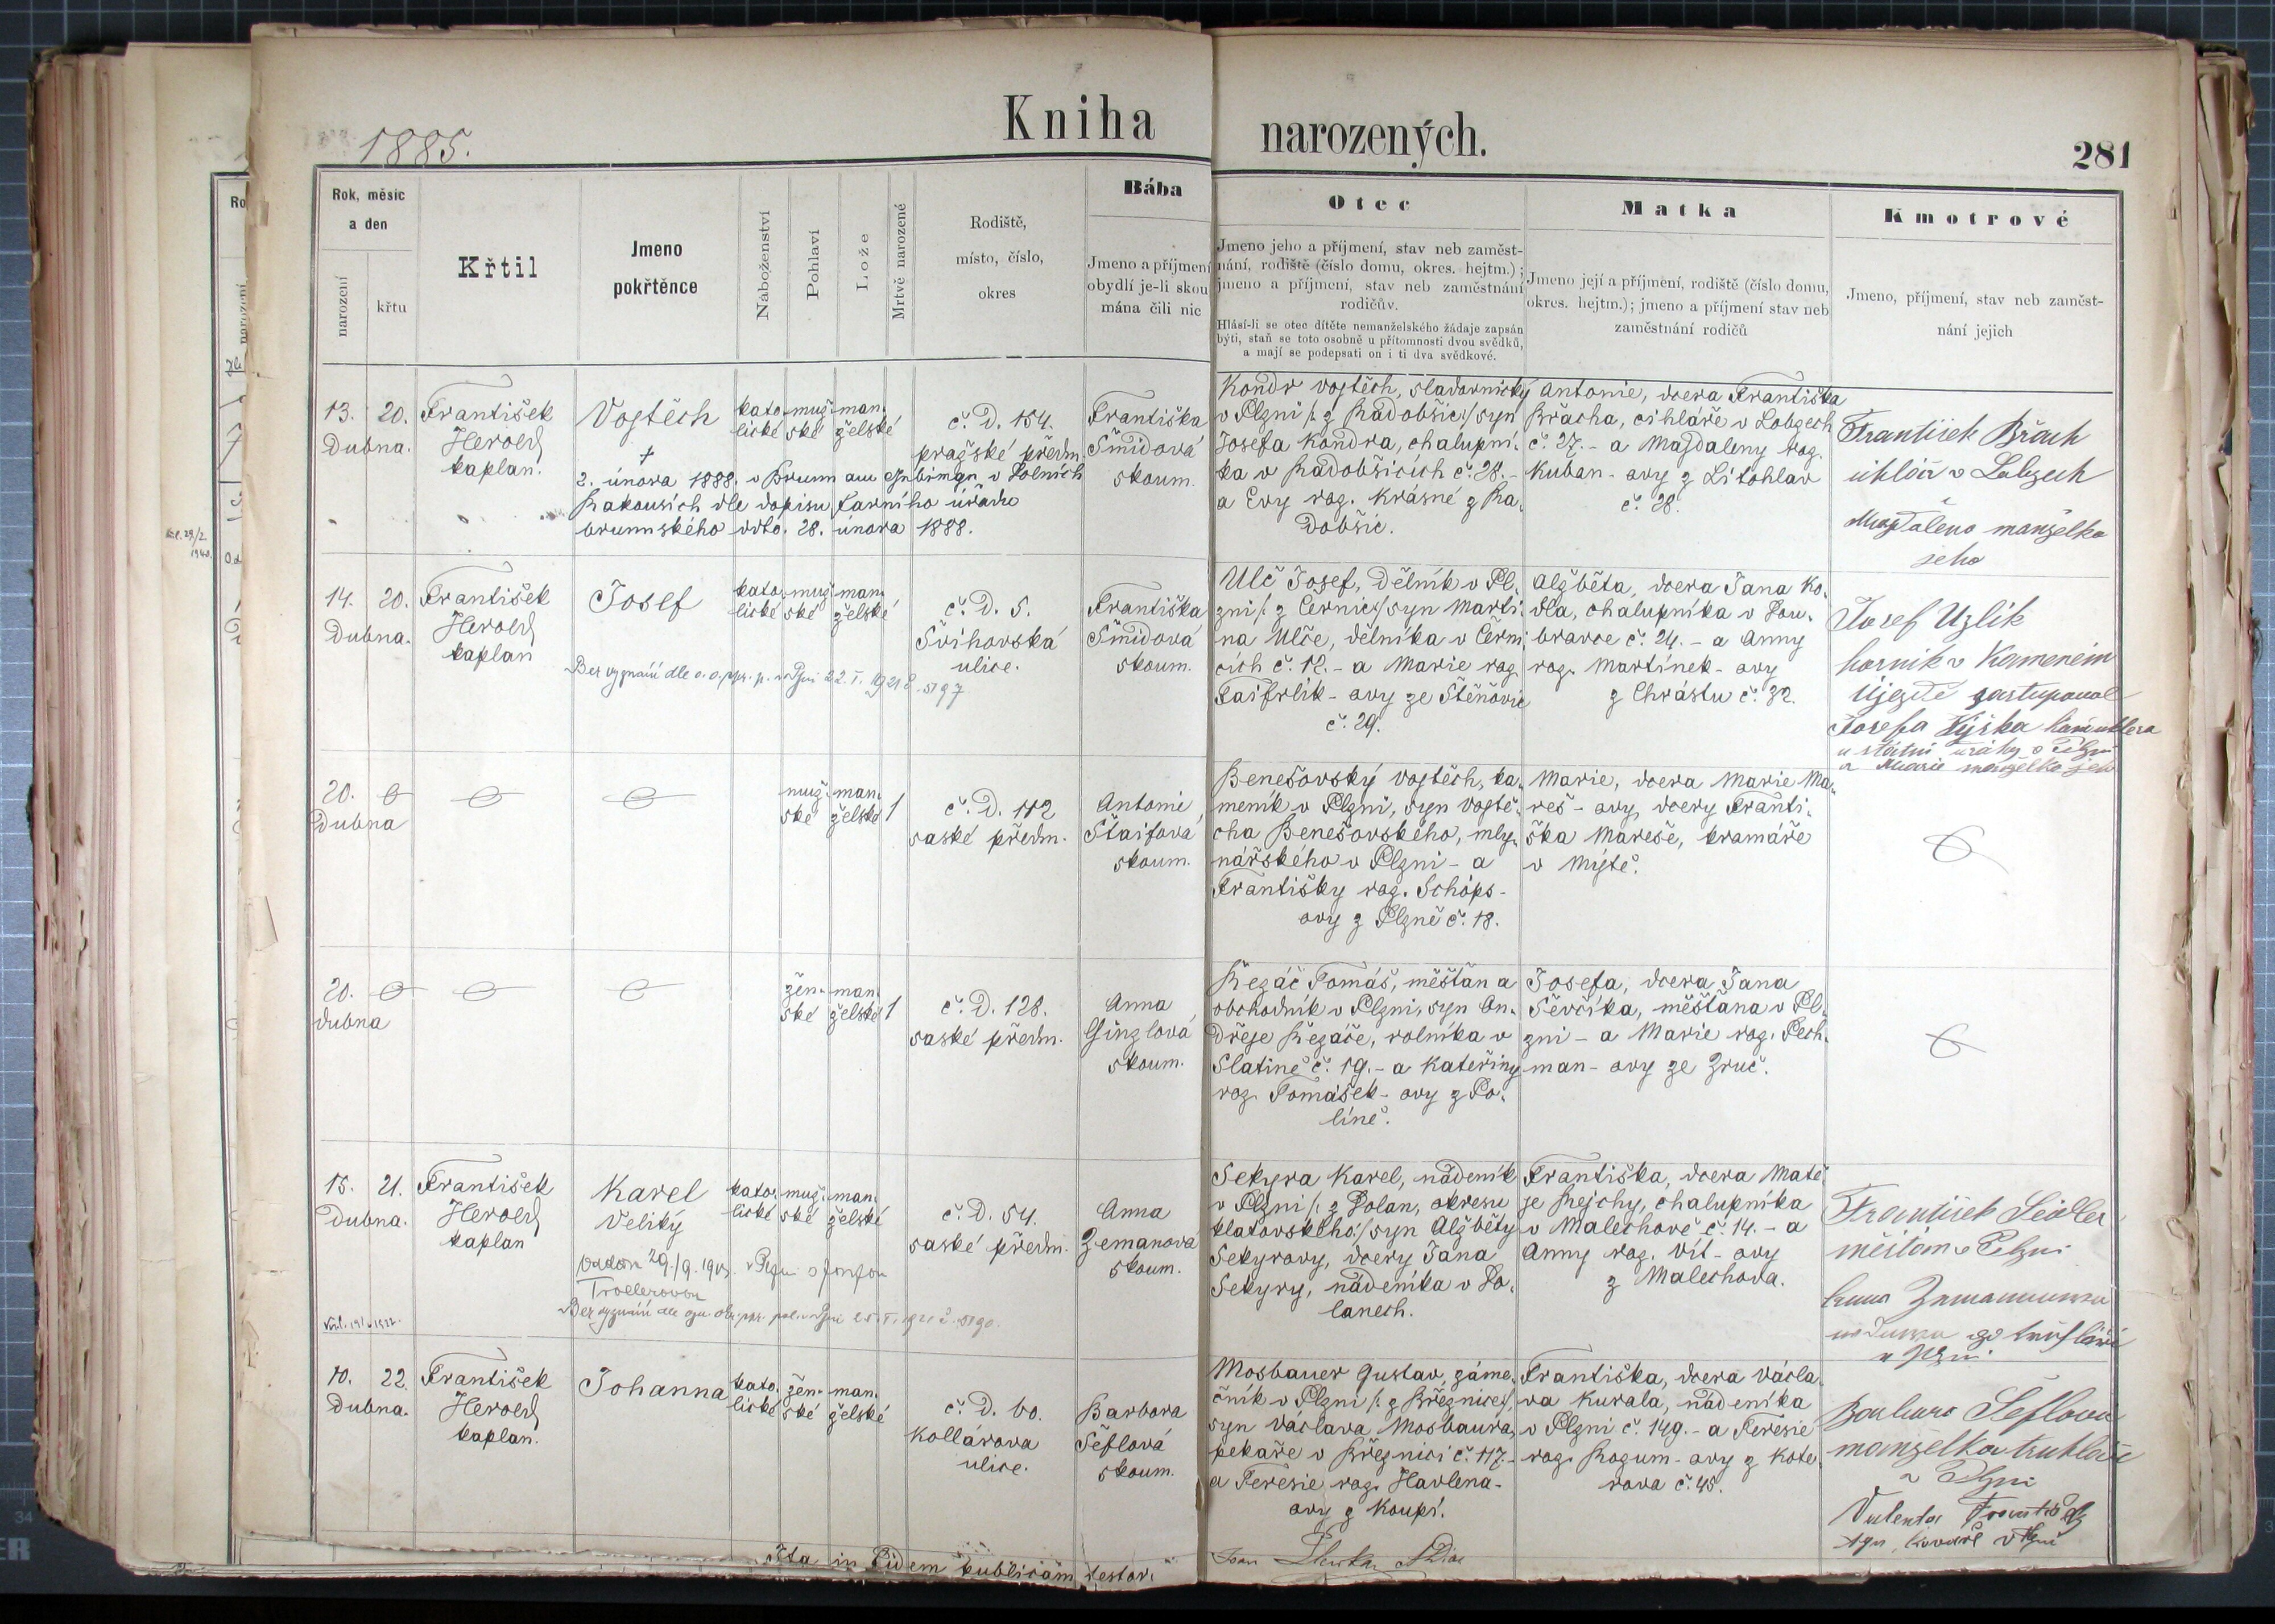 Kniha narozených.
1885.
281
Rok, měsíc a den
narození
křtu
Křtil
Jmeno pokřtěnce
Náboženství
Pohlaví
Lože
Mrtvě narozené
Rodiště, místo, číslo, okres
Bába
Jmeno a příjmení
obydlí je-li skou
mána čili nic
Otec
Jmeno jeho a příjmení, stav neb zaměst-
nání, rodiště (číslo domu, okres. hejtm.);
jmeno a příjmení, stav neb zaměstnání
rodičův.
Hlásí-li se otec dítěte nemanželského žádaje zapsán
býti, staň se toto osobně u přítomnosti dvou svědků,
a mají se podepsati on i ti dva svědkové.
Matka
Jmeno její a příjmení, rodiště (číslo domu,
okres. hejtm.); jmeno a příjmení stav neb
zaměstnání rodičů
Kmotrové
Jmeno, příjmení, stav neb zaměst-
nání jejich
13. 20.
Dubna.
František
Herold
kaplan.
Vojtěch
†
2. února 1888. v Brunn am Gebirge v Dolních
Rakousích dle dopisu farního úřadu
brunnského ddto. 28. února 1888.
kato-
lické
muž-
ské
man-
želské
č. D. 154.
pražské předm.
Františka
Šmídová
skoum.
Kondr Vojtěch, sladovnický
v Plzni /: z Radobšic:/ syn
Josefa Kondra, chalupní-
ka v Radobšicích č. 28. -
a Evy roz. Krásné z Ra-
dobšic.
Antonie, dcera Františka
Břacha, cihláře v Lobzech
č. 27. - a Majdaleny roz.
Kuban-ovy z Litohlav
č. 28.
František Břach
cihlář v Lobzech
Magdalena manželka
jeho
14. 20.
Dubna.
František
Herold
kaplan
Josef
Bez vyznání dle o. o. pr. p. v Plzni 22. I. 1921 č. 5197
kato-
lické
muž-
ské
man-
želské
č. D. 5.
Švihovská
ulice.
Františka
Šmídová
skoum.
Ulč Josef, dělník v Pl-
zni /: z Černic:/ syn Marti-
na Ulče, dělníka v Černi-
cích č. 12. - a Marie roz.
Faifrlík-ovy ze Štěnovic
č. 29.
Alžběta, dcera Jana Ko-
dla, chalupníka v Dou-
bravce č. 24. - a Anny
roz. Martínek-ovy
z Chrástu č. 32.
Josef Uzlík
horník v Kameném
Újezdě zastupoval
Josefa Výška
u státní dráhy v Plzni
a Marie manželka jeho
20.
Dubna
muž-
ské
man-
želské
1
č. D. 112
saské předm.
Antonie
Štaifová
skoum.
Benešovský Vojtěch, ka-
meník v Plzni, syn Vojtě-
cha Benešovského, mly-
nářského v Plzni - a
Františky roz. Schöps-
ovy z Plzně č. 18.
Marie, dcera Marie Ma-
reš-ovy, dcery Franti-
ška Mareše, kramáře
v Mýtě.
20.
dubna
žen-
ské
man-
želské
1
č. D. 128.
saské předm.
Anna
Ginzlová
skoum.
Řezáč Tomáš, měšťan a
obchodník v Plzni, syn On-
dřeje Řezáče, rolníka v
Slatině č. 19. - a Kateřiny
roz. Tomášek-ovy z Po-
líně.
Josefa, dcera Jana
Ševčíka, měšťana v Pl-
zni - a Marie roz. Pech-
man-ovy ze Zruč.
15. 21.
Dubna.
František
Herold
kaplan
Karel
Veliký
Oddán 29./9. 1905. v Plzni s Josefou
Troellerovou
Bez vyznání dle
kato-
lické
muž-
ské
man-
želské
č. D. 54.
saské předm.
Anna
Zemanova
skoum.
Sekyra Karel, nádeník
v Plzni /: z Dolan, okresu
klatovského:/ syn Alžběty
Sekyrovy, dcery Jana
Sekyry, nádeníka v Do-
lanech.
Františka, dcera Matě-
je Rejchy, chalupníka
v Malechově č. 14. - a
Anny roz. Vít-ovy
z Malechova.
František Seidler
měšťan v Plzni
Anna Zemanova
v Plzni.
10. 22.
Dubna.
František
Herold
kaplan.
Johanna
kato-
lické
žen-
ské
man-
želské
č. D. 60.
Kollárova
ulice.
Barbora
Šeflová
skoum.
Mosbauer Gustav, záme-
čník v Plzni /: z Březnice:/
syn Václava Mosbaura,
pekaře v Březnici č. 117. -
a Teresie roz. Havlena-
ovy z Koupí.
Františka, dcera Václa-
va Kurala, nádeníka
v Plzni č. 149. - a Teresie
roz. Rogum-ovy z Kote-
rova č. 45.
Barbora Šeflova
manželka truhláře
v Plzni
Valenta František
kovář v Plzni
Ita in fidem publicam testor: